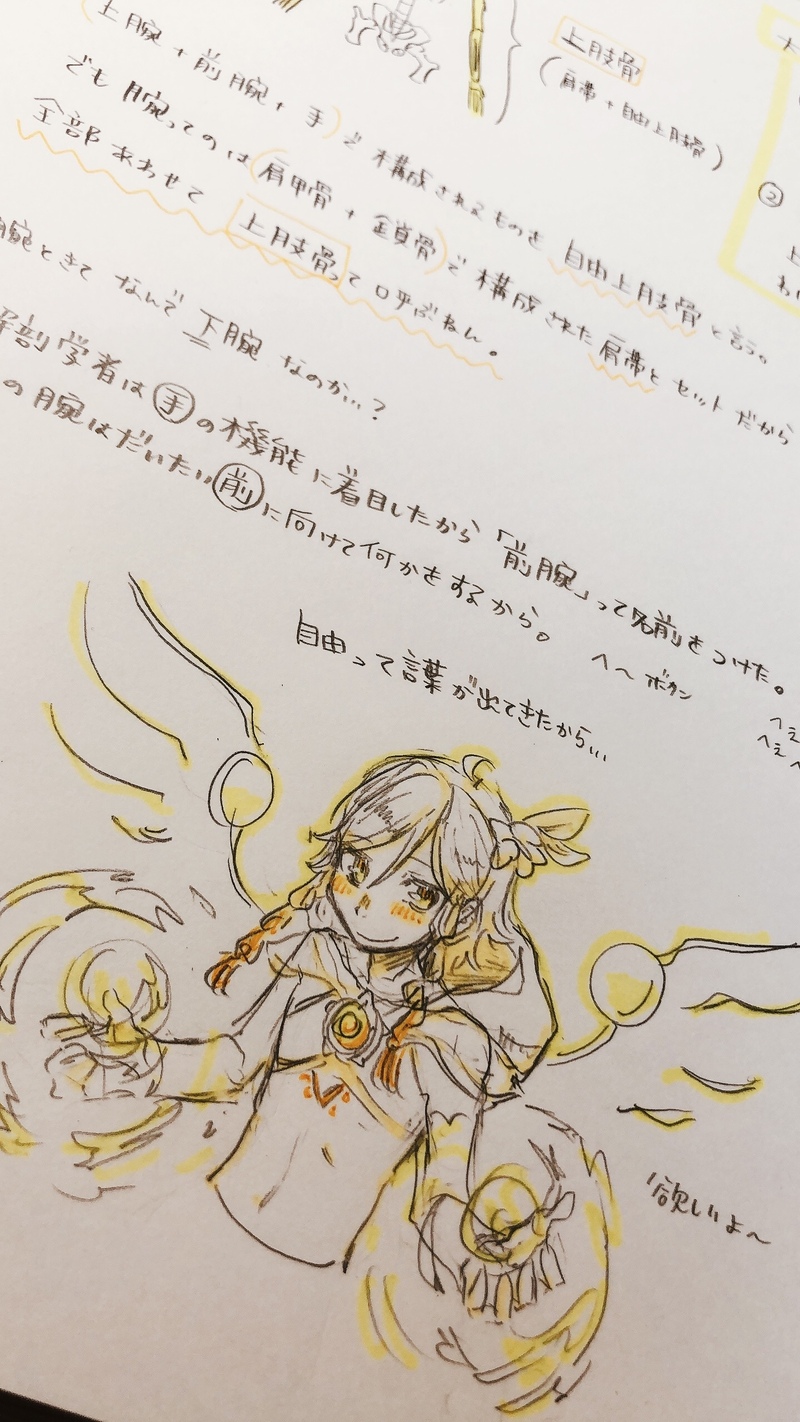 上肢骨
(肩帯+自由上肢骨)
②
(上腕+前腕+手)で構成されるものを自由上肢骨と言う。
でも腕ってのは(肩甲骨+鎖骨)で構成された肩帯とセットだから
全部あわせて上肢骨って呼ぶねん。
腕ときてなんで下腕なのか…?
解剖学者は手の機能に着目したから「前腕」って名前をつけた。
の腕はだいたい前に向けて何かをするから。
へ〜ボタン
自由って言葉が出てきたから…
欲しいよ〜